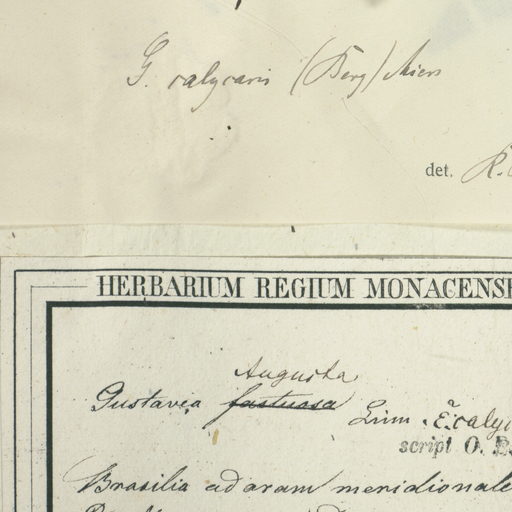 G. calycaris (Berg) Miers
det. R.
HERBARIUM REGIUM MONACENS
Augusta
Gustavea fastuosa Linn. ã calyc
script O. B.
Brasilia ad oram meridionale